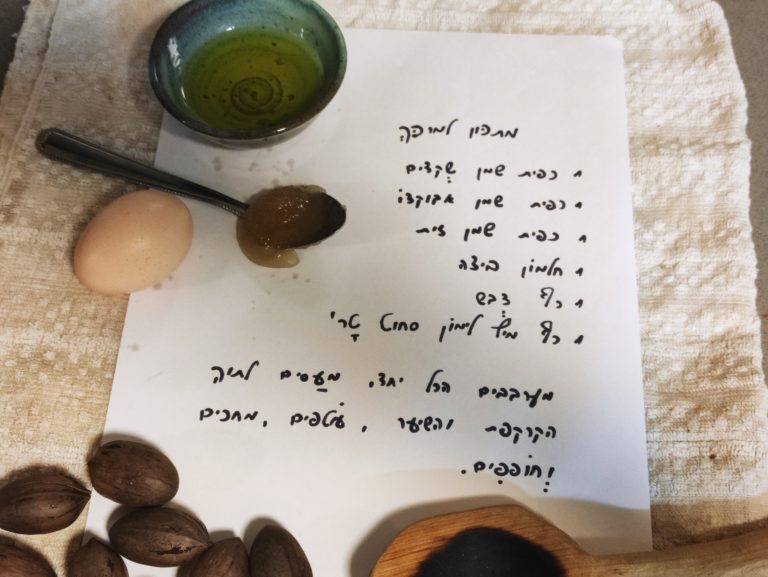 מתכון למסכה
1 כפית שמן שְקדים
1 כפית שמן אבוקדוֹ
1 כפית שמן זית
1 חלמוֹן ביצה
1 כף דְבש
1 כף מיץ לימוֹן סחוט טָרי
מערבבים הכל יחד, מעַסים לתוך
הקרקפת והשיער, עוֹטפים, מחכים
וְחוֹפפִים.